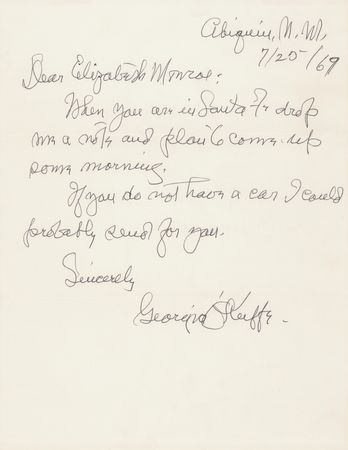 Abiquiu, N. M.
7/25/69
Dear Elizabeth Monroe:
When you are in Santa Fe drop
me a note and plan to come up
some morning.
If you do not have a car I could
probably send for you.
Sincerely
Georgia O'Keeffe